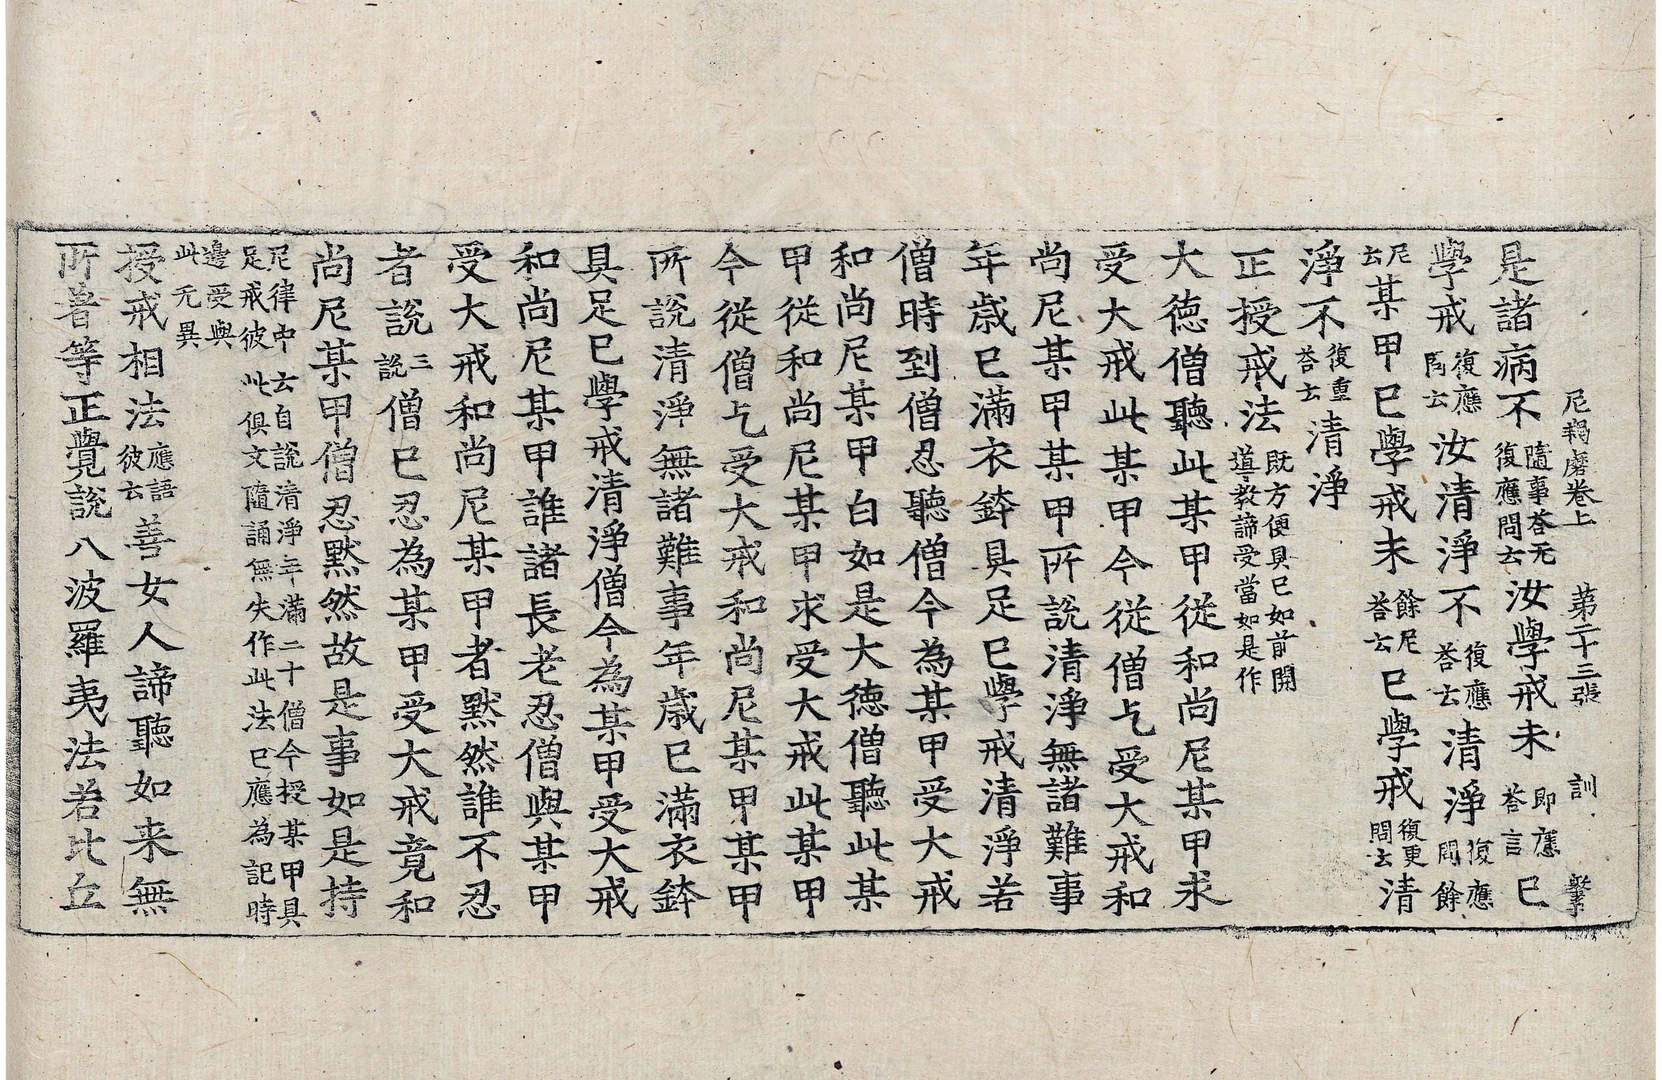 尼羯磨卷上 第二十三張 訓
是諸病不隨事荅元復應問云汝學戒未即應荅言已
學戒復應問云汝清淨不復應荅云清淨復應問餘
尼云某甲已學戒未餘尼荅云已學戒復更問云清
淨不復重荅云清淨
正授戒法既方便具已如前開導教諦受當如是作
大德僧聽此某甲從和尚尼某甲求
受大戒此某甲今從僧乞受大戒和
尚尼某甲某甲所說清淨無諸難事
年歲已滿衣鉢具足已學戒清淨若
僧時到僧忍聽僧今為某甲受大戒
和尚尼某甲白如是大德僧聽此某
甲從和尚尼某甲求受大戒此某甲
今從僧乞受大戒和尚尼某甲某甲
所說清淨無諸難事年歲已滿衣鉢
具足已學戒清淨僧今為某甲受大戒
和尚尼某甲誰諸長老忍僧與某甲
受大戒和尚尼某甲者默然誰不忍
者說三說僧已忍為某甲受大戒竟和
尚尼某甲僧忍默然故是事如是持
尼律中云自說清淨年滿二十僧今授某甲具足戒彼此俱文隨誦無失作此法已應為記時
邊受與此元異
授戒相法應語彼云善女人諦聽如来無
所著等正覺說八波羅夷法若比丘